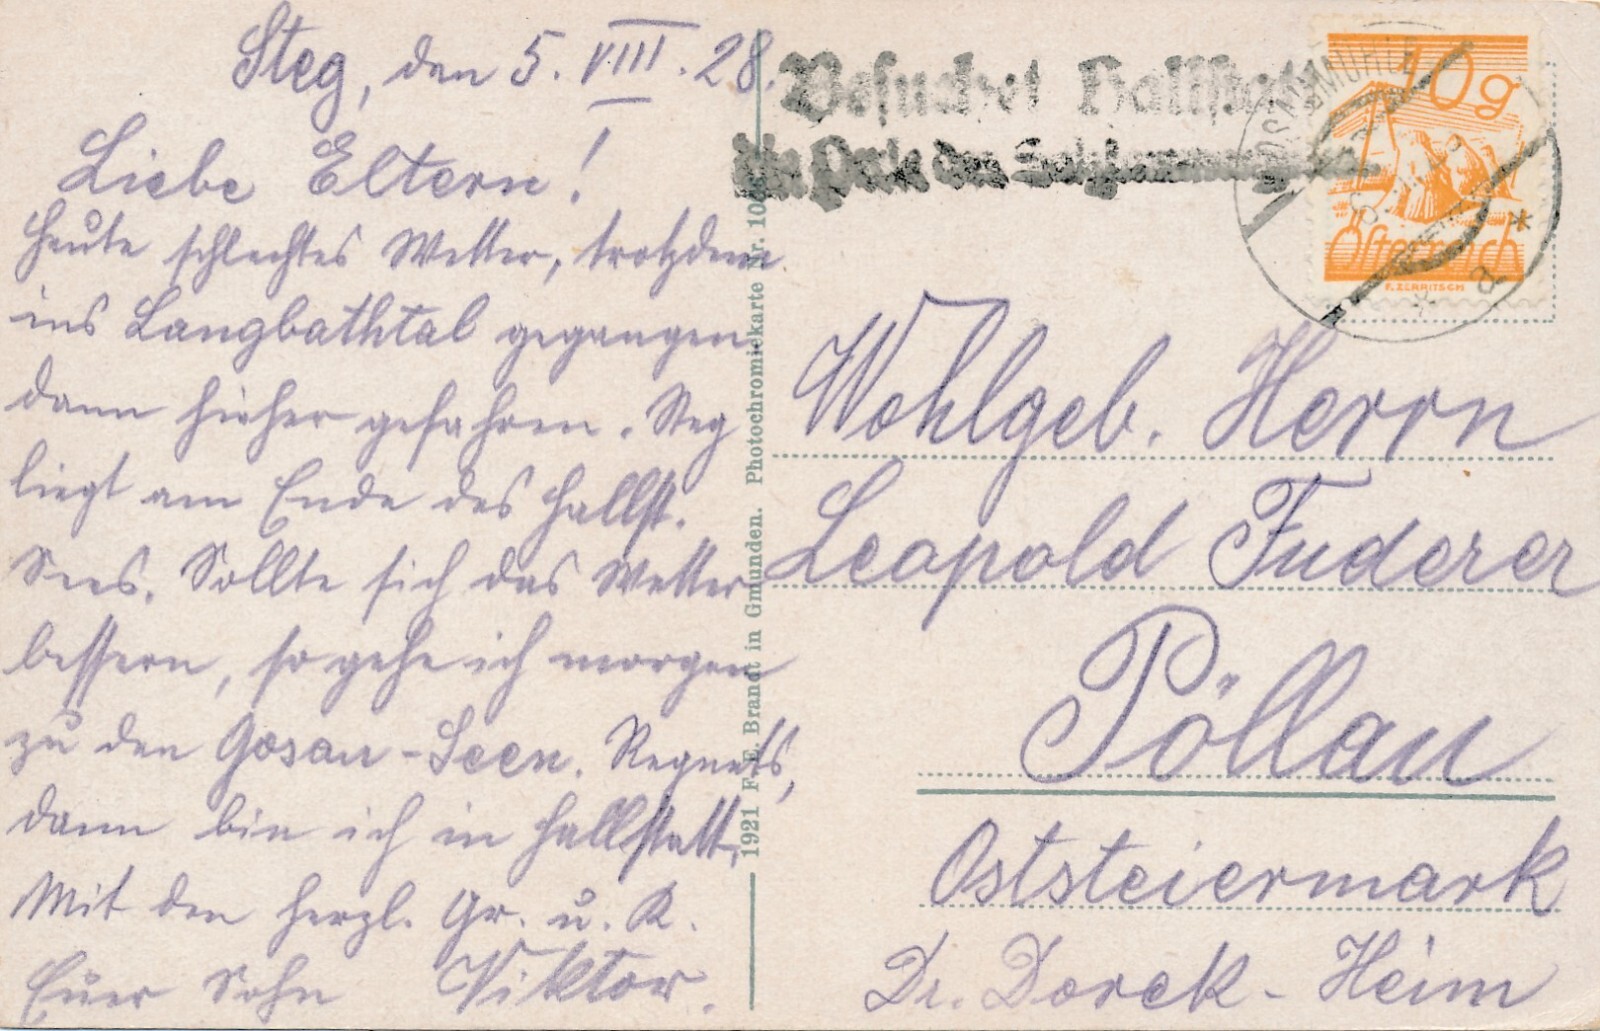 Steg, den 5. VIII. 28.
Liebe Eltern!
Heute schlechtes Wetter, trotzdem
ins Langbathtal gegangen,
dann hieher gefahren. Steg
liegt am Ende des Hallst.
Sees. Sollte sich das Wetter
bessern, so gehe ich morgen
zu den Gosau-Seen. Regnets,
dann bin ich in Hallstatt.
Mit den herzl. Gr. u. K.
Euer Sohn Viktor.
1921 F. E. Brandt in Gmunden. Photochromiekarte Nr. 10
Besuchet Hallstatt
die Perle des Salzkammergutes
10g
Österreich
F. ZERRITSCH
Wohlgeb. Herrn
Leopold Fuderer
Pöllau
Oststeiermark
Dr. Dorek-Heim